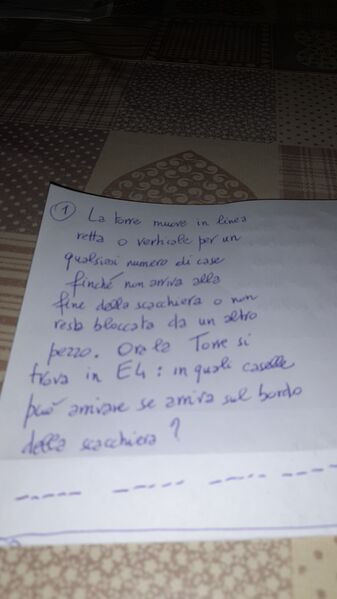 ① La torre muove in linea
retta o verticale per un
qualsiasi numero di case
finché non arriva alla
fine della scacchiera o non
resta bloccata da un altro
pezzo. Ora la Torre si
trova in E4: in quali caselle
può arrivare se arriva sul bordo
della scacchiera?